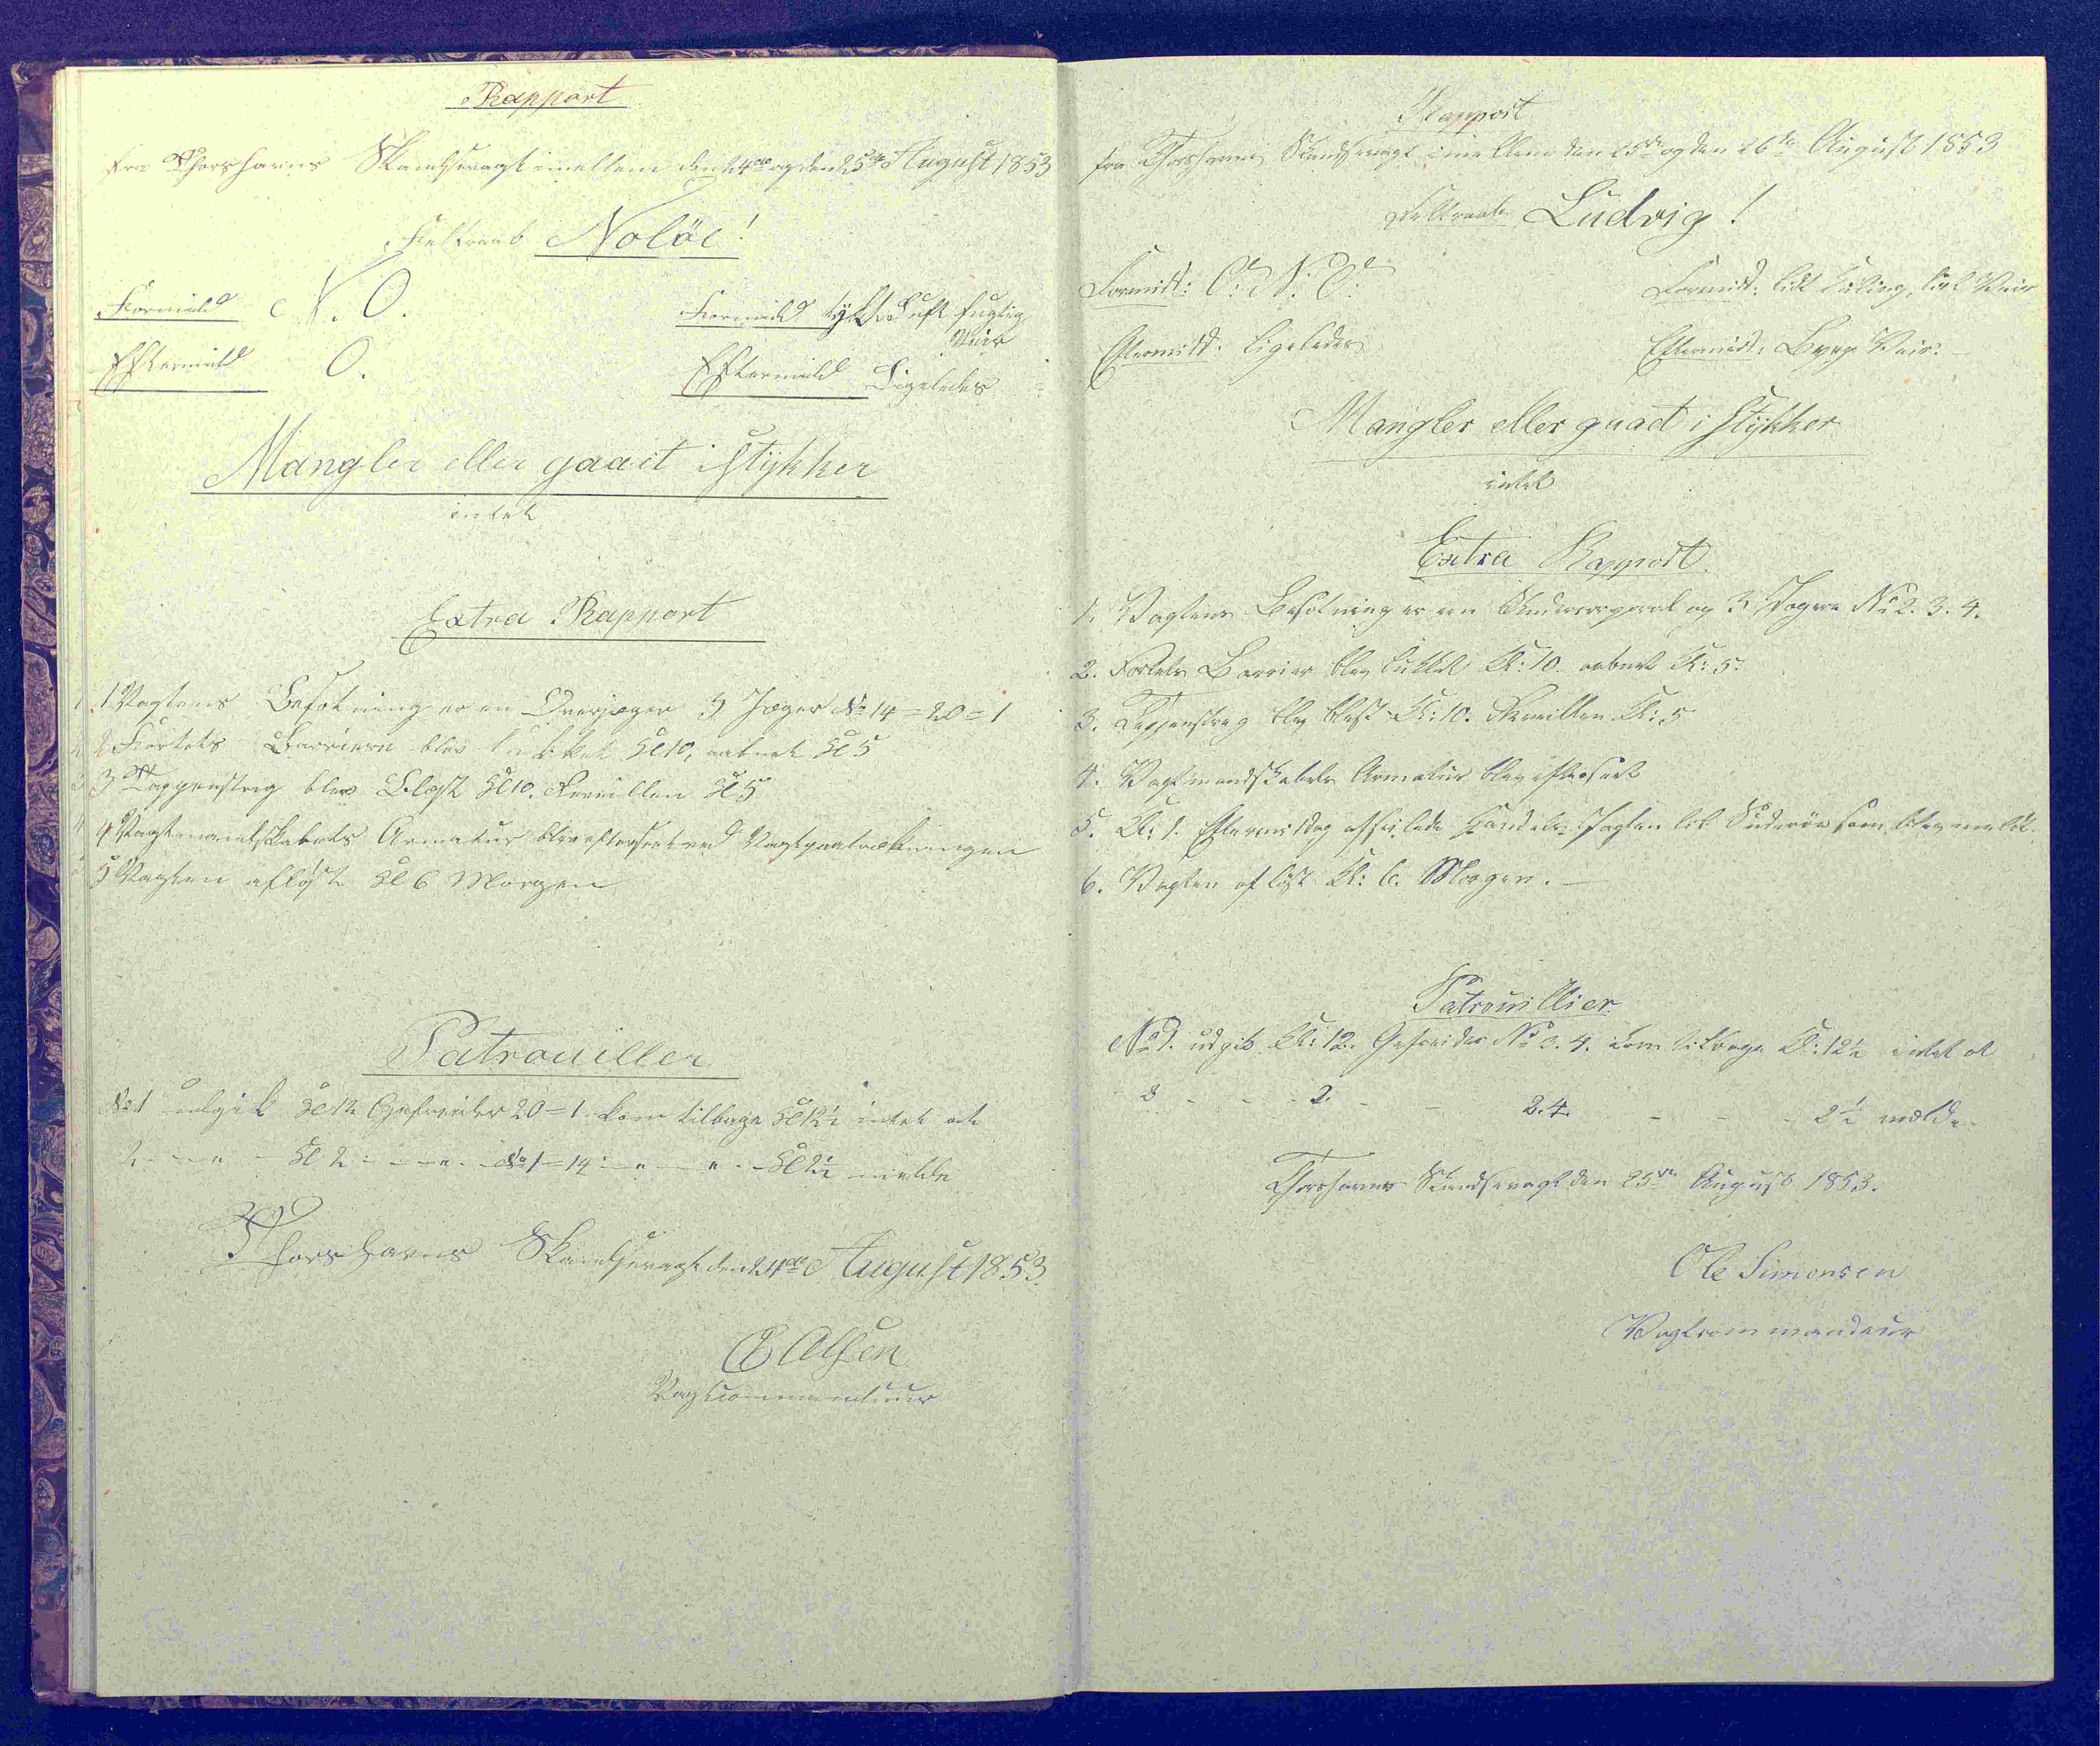 Rapport
fra Thorshavns Skandsevagt imellem den 24de og den 25de August 1853
Feltraab Nolöe!
Formidd N. O.
Formidd tyk Luft fugtig
Veir
Eftermidd O.
Eftermidd Ligeledes
Mangler eller gaaet i stykker
intet
Extra Rapport
1 Vagtens Besætning er en Overjæger 3 Jæger No 14 = 20 = 1
2 Fortets Barriere blev lukket Kl 10, aabnet Kl 5
3 Tappenstreg blev blæst Kl 10. Reveillen Kl 5
4 Vagtmandskabets Armatur blev efterseet ved Vagtpaatrækningen
5 Vagten afløst Kl 6 Morgen
Patrouiller
No 1 udgik Kl 12 Gefreider 20 = 1 kom tilbage Kl 12½ intet at
2 - - " - Kl 2 - - - " - - No 1 = 14 - " - - " - - Kl 2½ melde
Thorshavns Skandsevagt den 24de August 1853
Olsen
Vagtcommandeur
Rapport
fra Thorshavns Skandsevagt imellem den 25de og den 26de August 1853
Feltraab Ludvig!
Formidd: O. N. O.
Formidd: lidt Kuling, Veir
Eftermidd. ligeledes
Eftermidd: Veir. -
Mangler eller gaaet i stykker
intet
Extra Rapport.
1. Vagtens Besætning er en Undercorporal og 3 Jægere No 2. 3. 4.
2. Fortets Barrier blev lukket Kl: 10. aabnet Kl: 5.
3. Tappenstreg blev blæst Kl: 10. Reveillen Kl: 5
4. Vagtmandskabets Armatur blev efterseet
5. Kl: 1. Eftermiddag afseilede Handels Jagten til Suderöe som blev meldt.
6. Vagten afløst Kl: 6. Morgen. -
Patrouillier
No 1. udgik Kl: 12. Gefreider No 3. 4. kom tilbage Kl: 12½ intet at
2 - - - 2. - - 2. 4. - - - 2½ melde.
Thorshavns Skandsevagt den 25de August 1853.
Ole Simonsen
Vagtcommandeur